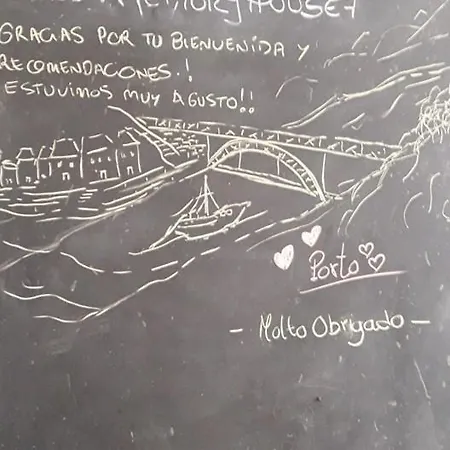 GRACIAS POR TU BIENVENIDA Y
RECOMENDACIONES.!
ESTUVIMOS MUY AGUSTO!!
Porto
- Molto Obrigado -